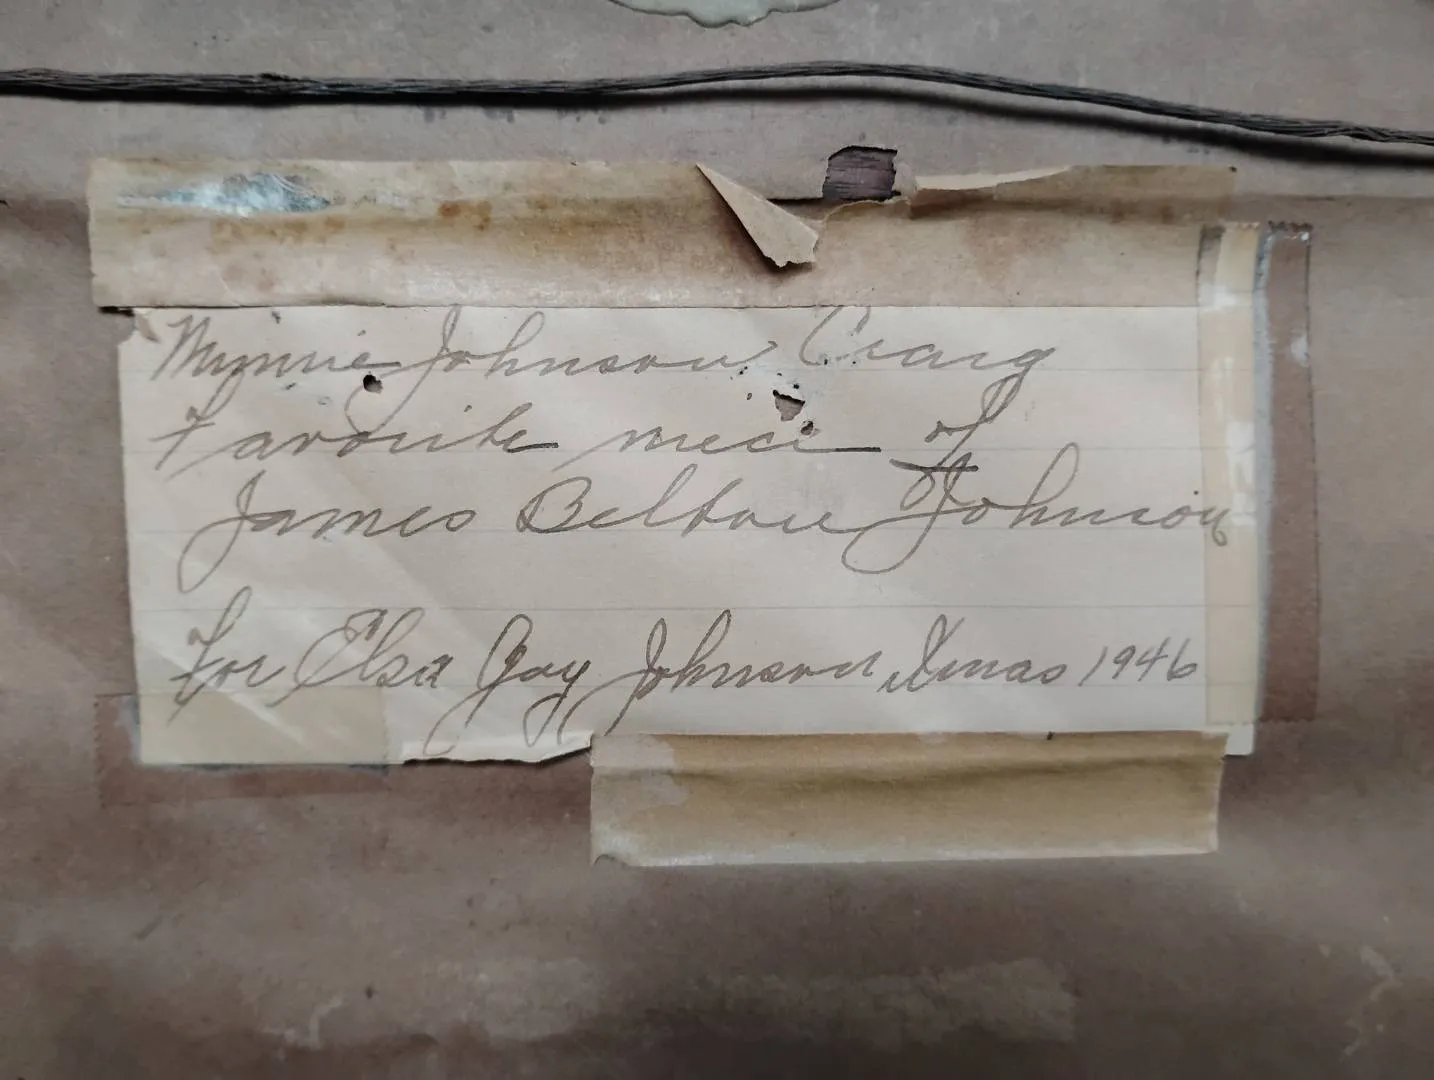 Minnie Johnson Craig
Favorite niece of
James Beltou Johnson
For Elsa Gay Johnson Xmas 1946